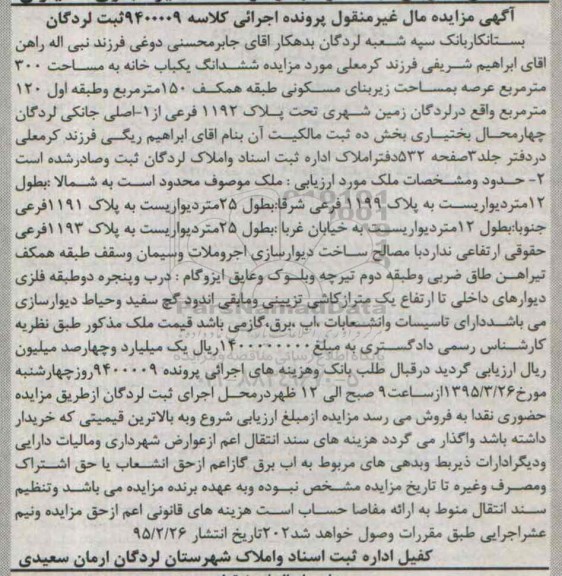 آگهی مزایده مال غیرمنقول پرونده اجرائی کلاسه ۹۴۰۰۰۰۹ثبت لردگان
بستانکاربانک سپه شعبه لردگان بدهکار اقای جابرمحسنی دوغی فرزند نبی اله راهن
اقای ابراهیم شریفی فرزند کرمعلی مورد مزایده ششدانگ یکباب خانه به مساحت ۳۰۰
مترمربع عرصه بمساحت زیربنای مسکونی طبقه همکف ۱۵۰مترمربع وطبقه اول ۱۲۰
مترمربع واقع درلردگان زمین شهری تحت پلاک ۱۱۹۲ فرعی از۱-اصلی جانکی لردگان
چهارمحال بختیاری بخش ده ثبت مالکیت آن بنام اقای ابراهیم ریگی فرزند کرمعلی
دردفتر جلد۳صفحه ۵۳۲دفتراملاک اداره ثبت اسناد واملاک لردگان ثبت وصادرشده است
۲- حدود ومشخصات ملک مورد ارزیابی : ملک موصوف محدود است به شمالا :بطول
۱۲متردیواریست به پلاک ۱۱۹۹ فرعی شرقا:بطول ۲۵متردیواریست به پلاک ۱۱۹۱فرعی
جنوبا:بطول ۱۲متردیواریست به خیابان غربا :بطول ۲۵متردیواریست به پلاک ۱۱۹۳فرعی
حقوقی ارتفاعی نداردبا مصالح ساخت دیوارسازی اجروملات وسیمان وسقف طبقه همکف
تیراهن طاق ضربی وطبقه دوم تیرچه وبلوک وعایق ایزوگام : درب وپنجره دوطبقه فلزی
دیوارهای داخلی تا ارتفاع یک مترازکاشی تزیینی ومابقی اندود گچ سفید وحیاط دیوارسازی
می باشددارای تاسیسات وانشعابات ،اب ،برق،گازمی باشد قیمت ملک مذکور طبق نظریه
کارشناس رسمی دادگستری به مبلغ ۱۴۰۰۰۰۰۰۰۰ریال یک میلیارد وچهارصد میلیون
ریال ارزیابی گردید درقبال طلب بانک وهزینه های اجرائی پرونده ۹۴۰۰۰۰۹روزچهارشنبه
مورخ۱۳۹۵/۳/۲۶ازساعت۹ صبح الی ۱۲ ظهردرمحل اجرای ثبت لردگان ازطریق مزایده
حضوری نقدا به فروش می رسد مزایده ازمبلغ ارزیابی شروع وبه بالاترین قیمیتی که خریدار
داشته باشد واگذار می گردد هزینه های سند انتقال اعم ازعوارض شهرداری ومالیات دارایی
ودیگرادارات ذیربط وبدهی های مربوط به اب برق گازاعم ازحق انشعاب یا حق اشتراک
ومصرف وغیره تا تاریخ مزایده مشخص نبوده وبه عهده برنده مزایده می باشد وتنظیم
سند انتقال منوط به ارائه مفاصا حساب است هزینه های قانونی اعم ازحق مزایده ونیم
عشراجرایی طبق مقررات وصول خواهد شد۲۰۲تاریخ انتشار ۹۵/۲/۲۶
کفیل اداره ثبت اسناد واملاک شهرستان لردگان ارمان سعیدی